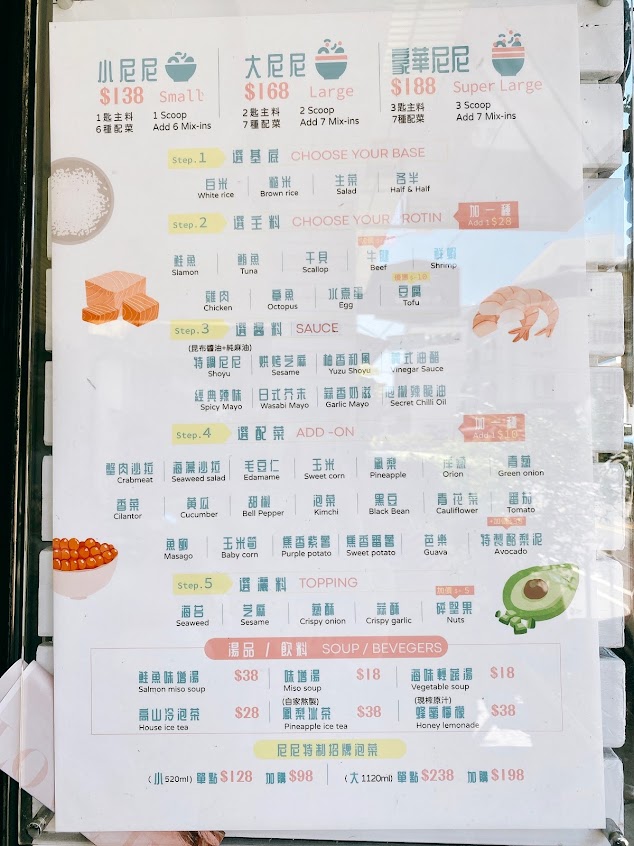 小尼尼 大尼尼 豪華尼尼
$138 Small $168 Large $188 Super Large
1匙主料 1 Scoop 2匙主料 2 Scoop 3匙主料 3 Scoop
6種配菜 Add 6 Mix-ins 7種配菜 Add 7 Mix-ins 7種配菜 Add 7 Mix-ins
Step.1 選基底 CHOOSE YOUR BASE
白米 糙米 生菜 各半
White rice Brown rice Salad Half & Half
Step.2 選主料 CHOOSE YOUR PROTIN 加一種
Add 1 $28
鮭魚 鮪魚 干貝 牛腱 鮮蝦
Slamon Tuna Scallop Beef Shrimp
雞肉 章魚 水煮蛋 豆腐
Chicken Octopus Egg Tofu
Step.3 選醬料 SAUCE
(昆布醬油+純麻油)
特調尼尼 烘烤芝麻 柚香和風 義式油醋
Shoyu Sesame Yuzu Shoyu Vinegar Sauce
經典辣味 日式芥末 蒜香奶滋 辣脆油
Spicy Mayo Wasabi Mayo Garlic Mayo Secret Chilli Oil
Step.4 選配菜 ADD -ON 加一種
Add 1
蟹肉沙拉 海藻沙拉 毛豆仁 玉米 鳳梨 洋蔥 青蔥
Crabmeat Seaweed salad Edamame Sweet corn Pineapple Orion Green onion
香菜 黃瓜 甜椒 泡菜 黑豆 青花菜 番茄
Cilantor Cucumber Bell Pepper Kimchi Black Bean Cauliflower Tomato
魚卵 玉米筍 焦香紫薯 焦香番薯 芭樂 特製酪梨泥
Masago Baby corn Purple potato Sweet potato Guava Avocado
Step.5 選灑料 TOPPING
海苔 芝麻 蔥酥 蒜酥 碎堅果
Seaweed Sesame Crispy onion Crispy garlic Nuts
湯品 / 飲料 SOUP / BEVEGERS
鮭魚味增湯 $38 味增湯 $18 海味輕蔬湯 $18
Salmon miso soup Miso soup Vegetable soup
(自家熬製) (現榨原汁)
高山冷泡茶 $28 鳳梨冰茶 $38 蜂蜜檸檬 $38
House ice tea Pineapple ice tea Honey lemonade
尼尼特制招牌泡菜
(小520ml) 單點$128 加購$98 (大1120ml) 單點$238 加購$198